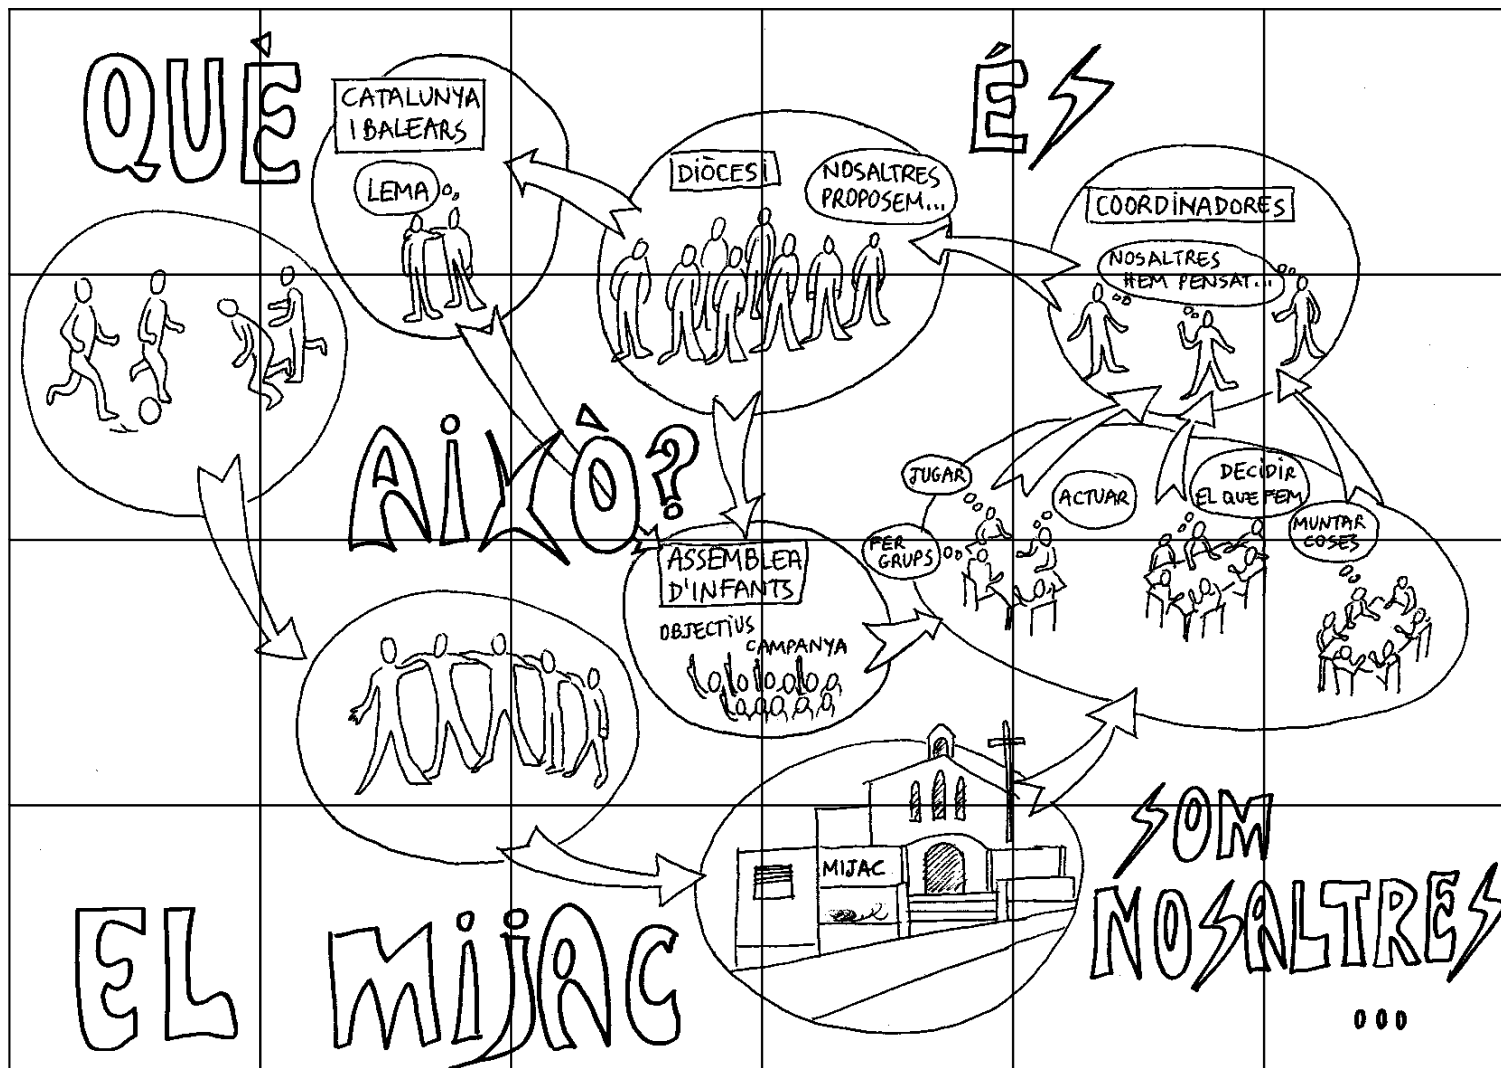 QUÈ
ÉS
AIXÒ?
CATALUNYA
I BALEARS
LEMA
DIÒCESI
NOSALTRES
PROPOSEM...
COORDINADORES
NOSALTRES
HEM PENSAT...
JUGAR
ACTUAR
DECIDIR
EL QUE FEM
MUNTAR
COSES
FER
GRUPS
ASSEMBLEA
D'INFANTS
OBJECTIUS
CAMPANYA
MIJAC
EL MIJAC
SOM
NOSALTRES
...